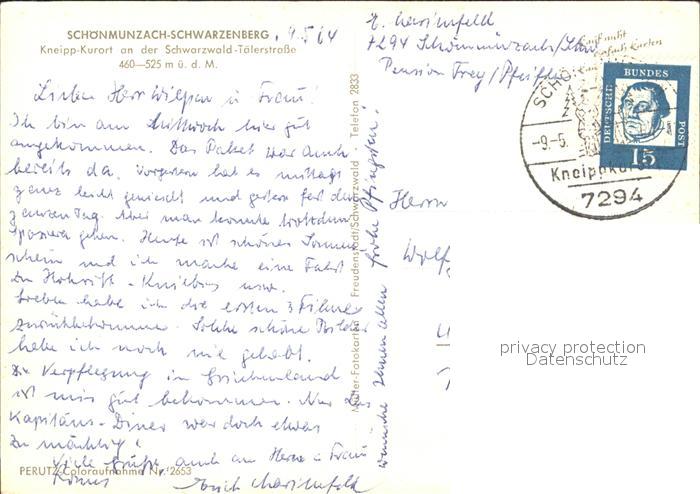 SCHÖNMUNZACH-SCHWARZENBERG, 9.5.64
Kneipp-Kurort an der Schwarzwald-Tälerstraße
460—525 m ü. d. M.
Lieber Herr u. Frau!
Ich bin am Mittwoch hier gut
angekommen. Das Paket war auch
bereits da. Vorgestern hat es mittags
ganz leicht genieselt und gestern fast den
ganzen Tag. Aber man konnte trotzdem
spazieren gehen. Heute ist schönes Sonnen-
schein und ich mache eine Fahrt
zu - Kniebis usw.
Soeben habe ich die ersten 3 Filme
zurückbekommen. Solche schöne Bilder
habe ich noch nie gehabt.
Die Verpflegung in Griechenland
ist mir gut bekommen. Nur das
Kapitäns-Diner war doch etwas
zu mächtig!
Viele Grüße auch an Herrn u. Frau
Erich Marienfeld
PERUTZ-Coloraufnahme Nr. 2653
Müller-Fotokarten Freudenstadt/Schwarzwald - Telefon 2833
wünsche Ihnen allen frohe Pfingsten!
E. Marienfeld
7294 Schönmünzach/Schw.
Pension Frey/Pfeifle
SCHÖ
-9-5.
Kneippkuro
7294
DEUTSCHE
BUNDES
POST
15
Herrn
Wolf
privacy protection
Datenschutz